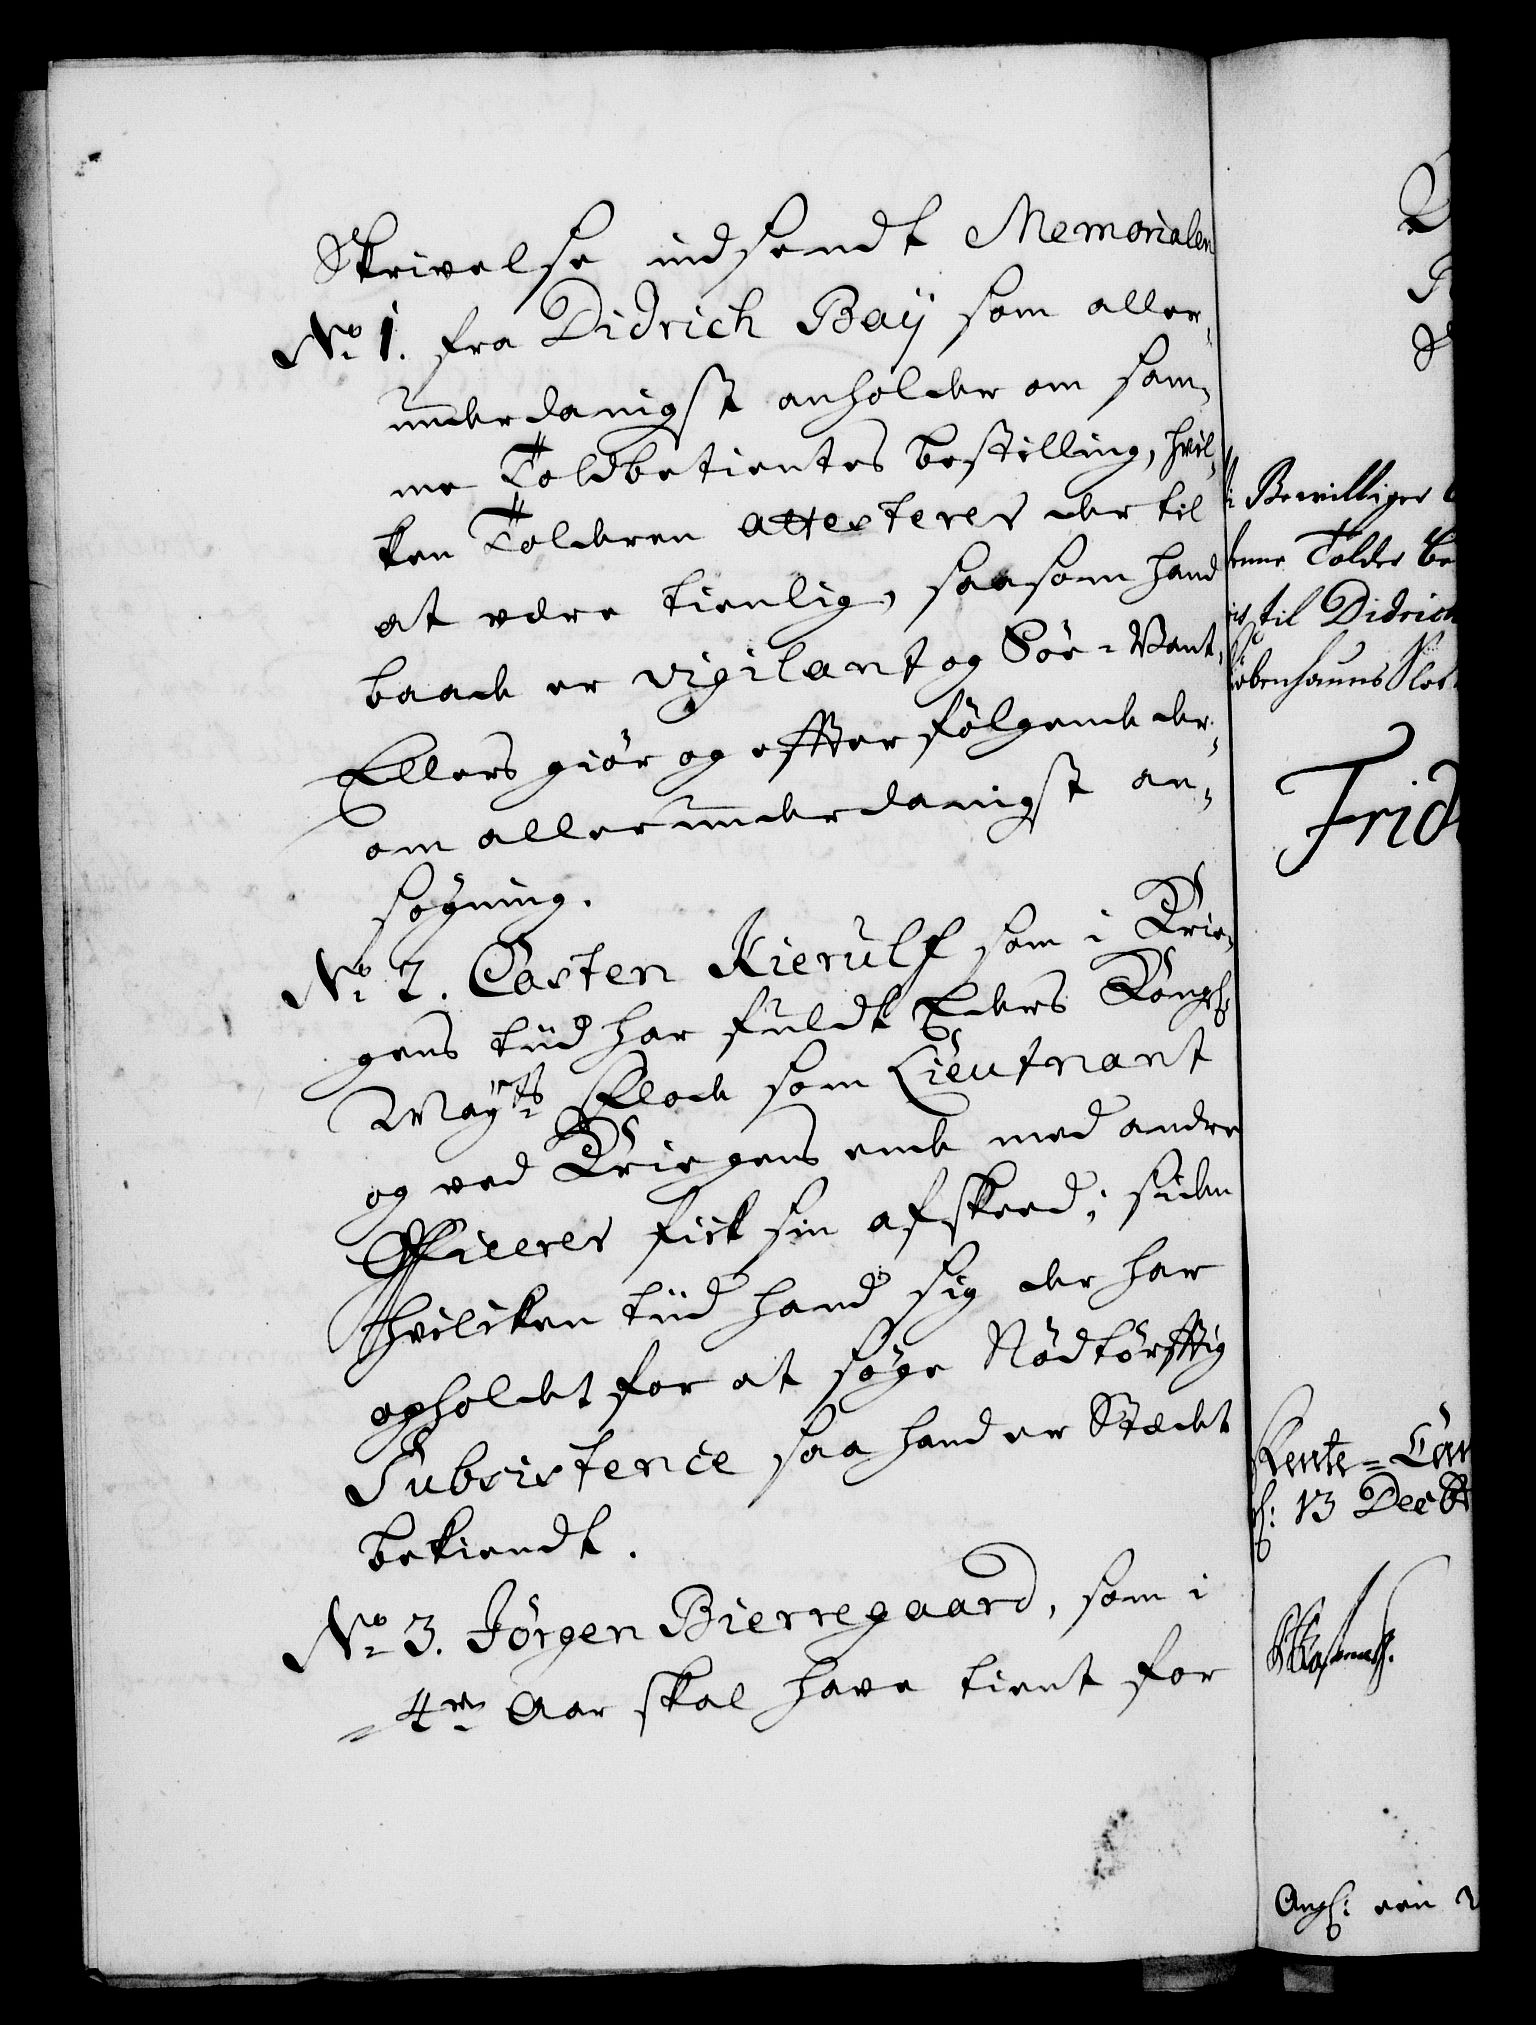 Skrivelse indsendt Memorialen
No 1. fra Didrich Baÿ som aller-
underdanigst anholder om sam-
me Toldbetientes bestilling, hvil-
ken Tolderen attesterer der til
at være tienlig, saasom hand
baade er vigilant og Söe-Vant,
Ellers giör og effter fölgende der-
om allerunderdanigst an-
sögning.
No 2. Casten Kierulf som i Krie-
gens tiid har fuldt Eders Kongl:
Mayts: Flode som Lieutnant
og ved Kriegens ende med andre
Officerer fick sin afskeed; siden
hvilcken tiid hand sig der har
opholdet for at söge Nödtörfftig
Subsistence saa hand er Stædet
bekiendt.
No 3. Jörgen Bierregaard, som i
4re Aar skal have tient for
Bewilliger
Tolder be
til Didrich
Kiöbenhauns Slot
Frid
Rente-Cam
d: 13 Decbr
Angl: een